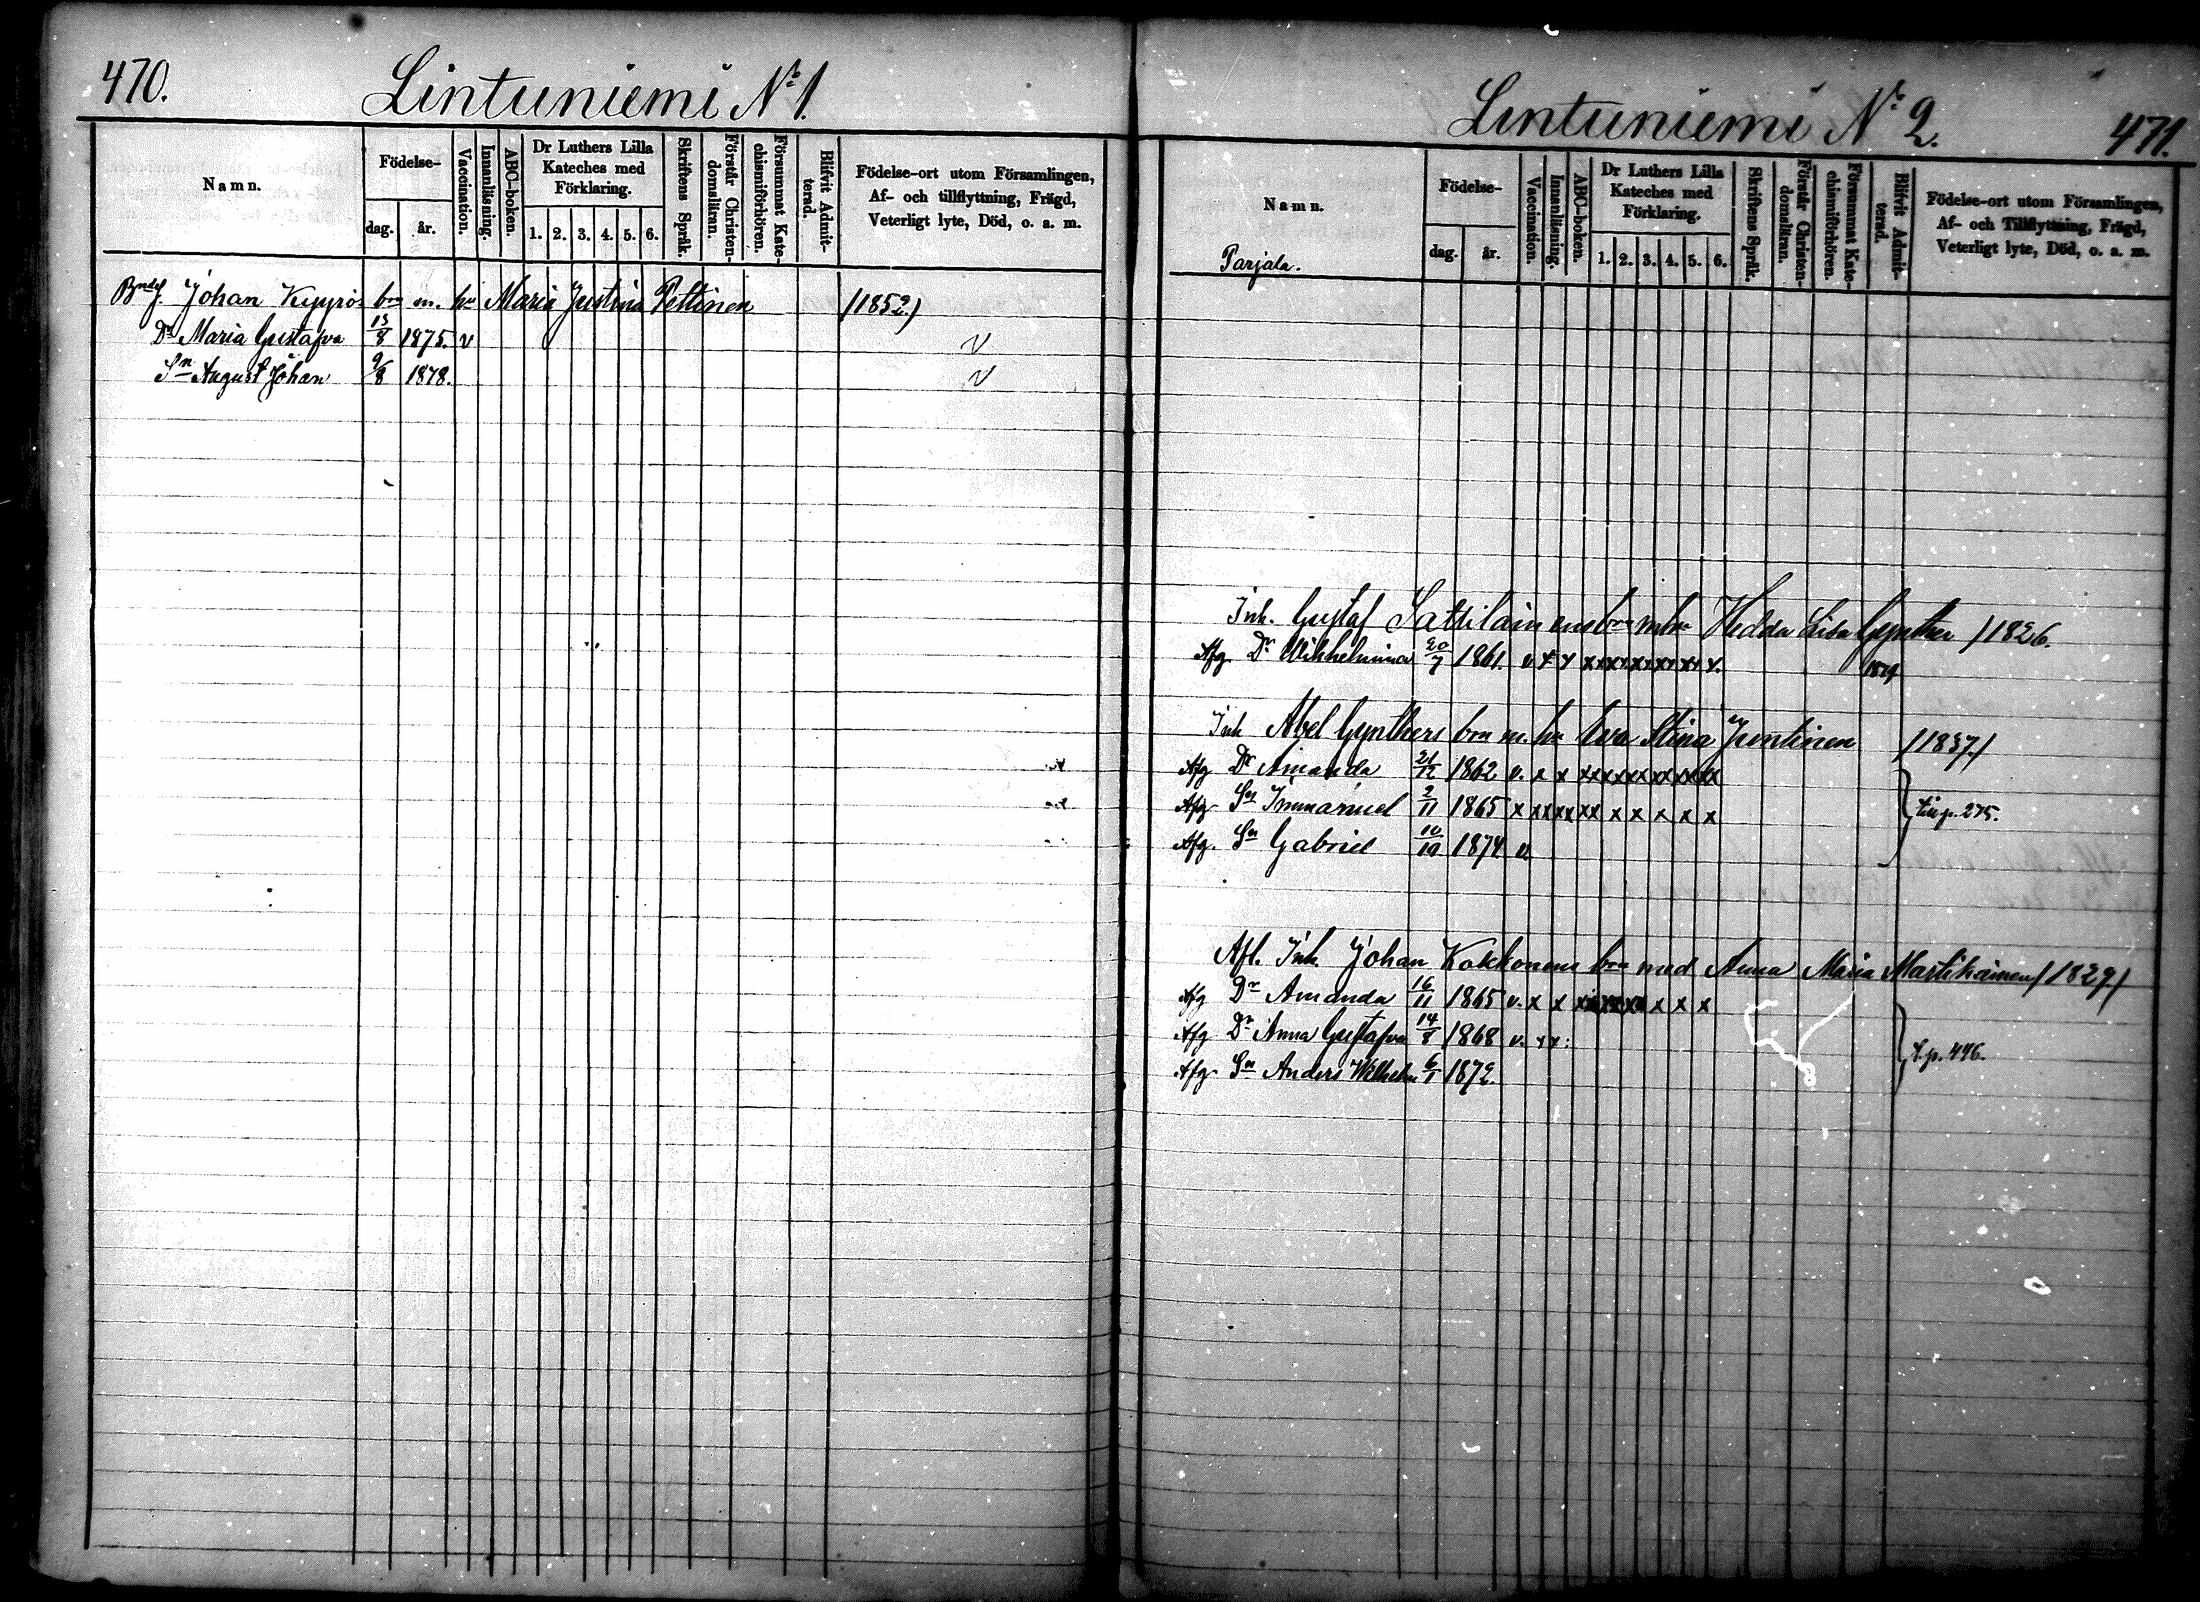 470.
Lintuniemi No 1.
Namn.
Födelse-
dag.
år.
Vaccination.
Innanläsning.
ABC-boken.
Dr Luthers Lilla
Kateches med
Förklaring.
1. 2. 3. 4. 5. 6.
Skriftens Språk.
Förstår Christen-
domsläran.
Försummat Kate-
chismiförhören.
Blifvit Admit-
terad.
Födelse-ort utom Församlingen,
Af- och tillflyttning, Frägd,
Veterligt lyte, Död, o. a. m.
Johan Kyyrös brn m. hu Maria Justina Peltinen (1852.)
Dr Maria Gustafva 13/8 1875. v v
Sn August Johan 9/8 1878. v
Lintuniemi No 2.
471.
Namn.
Parjala.
Födelse-
dag.
år.
Vaccination.
Innanläsning.
ABC-boken.
Dr Luthers Lilla
Kateches med
Förklaring.
1. 2. 3. 4. 5. 6.
Skriftens Språk.
Förstår Christen-
domsläran.
Försummat Kate-
chismiförhören.
Blifvit Admit-
terad.
Födelse-ort utom Församlingen,
Af- och Tillflyttning, Frägd,
Veterligt lyte, Död, o. a. m.
Inh. Gustaf brn Hedda Lisa Gynther /1826.
Afg. Dr Wilhelmina 20/7 1861. v x x xxxxxxxxxx x. 1879
Inh Abel Gynthers brn m. hu Eva Stina Juntinen /1837/
Afg Dr Amanda 21/12 1862 v. x x xxxxxxxxxxx
Afg. Sn Immanuel 2/11 1865 x xxxx xx x x x x x till p. 275.
Afg. Sn Gabriel 10/10 1874 v.
Afl. Inh. Johan Kokkonens brn med Anna Maria Martikainen /1829/
Afg Dr Amanda 16/11 1865 v. x x xxxxxx x x x
Afg Dr Anna Gustafva 14/8 1868 v. xx: t. p. 446.
Afg. Sn Anders Wilhelm 6/1 1872.